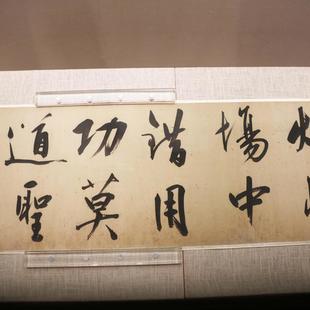 場中
錯用
功莫
道聖